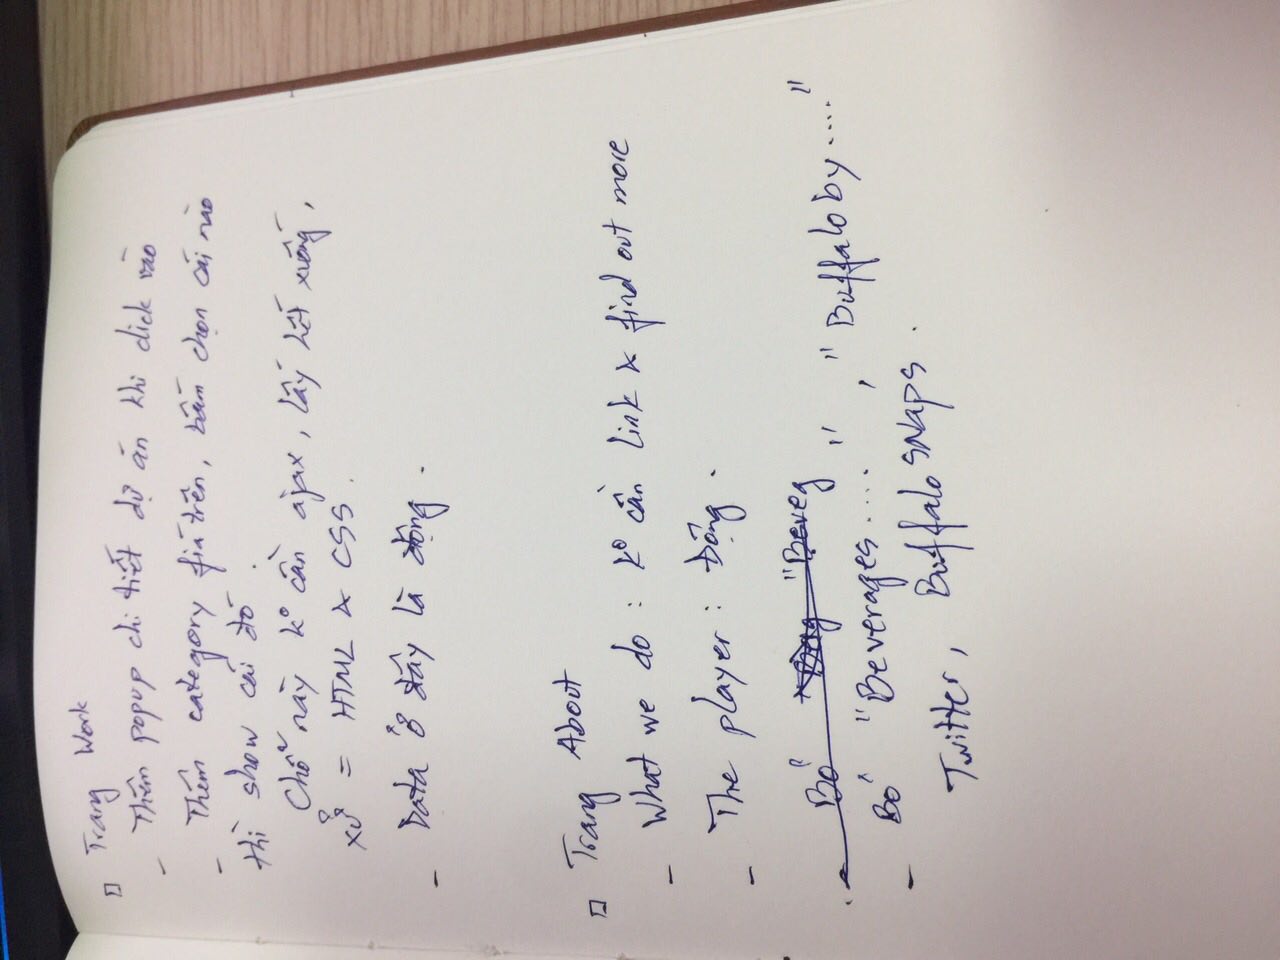 Trang Work
- Thêm popup chi tiết dự án khi click vào
- Thêm category fiá trên, bấm chọn cái nào
thì show cái đó.
Chỗ này k° cần ajax, lấy hết xuống,
xử = HTML & CSS.
- Data ở đây là động.
Trang About
- What we do : k° cần link & find out more
- The player : Động.
- Bỏ "Beveg
- Bỏ "Beverages....", "Buffalo by...."
Twitter, Buffalo snaps.